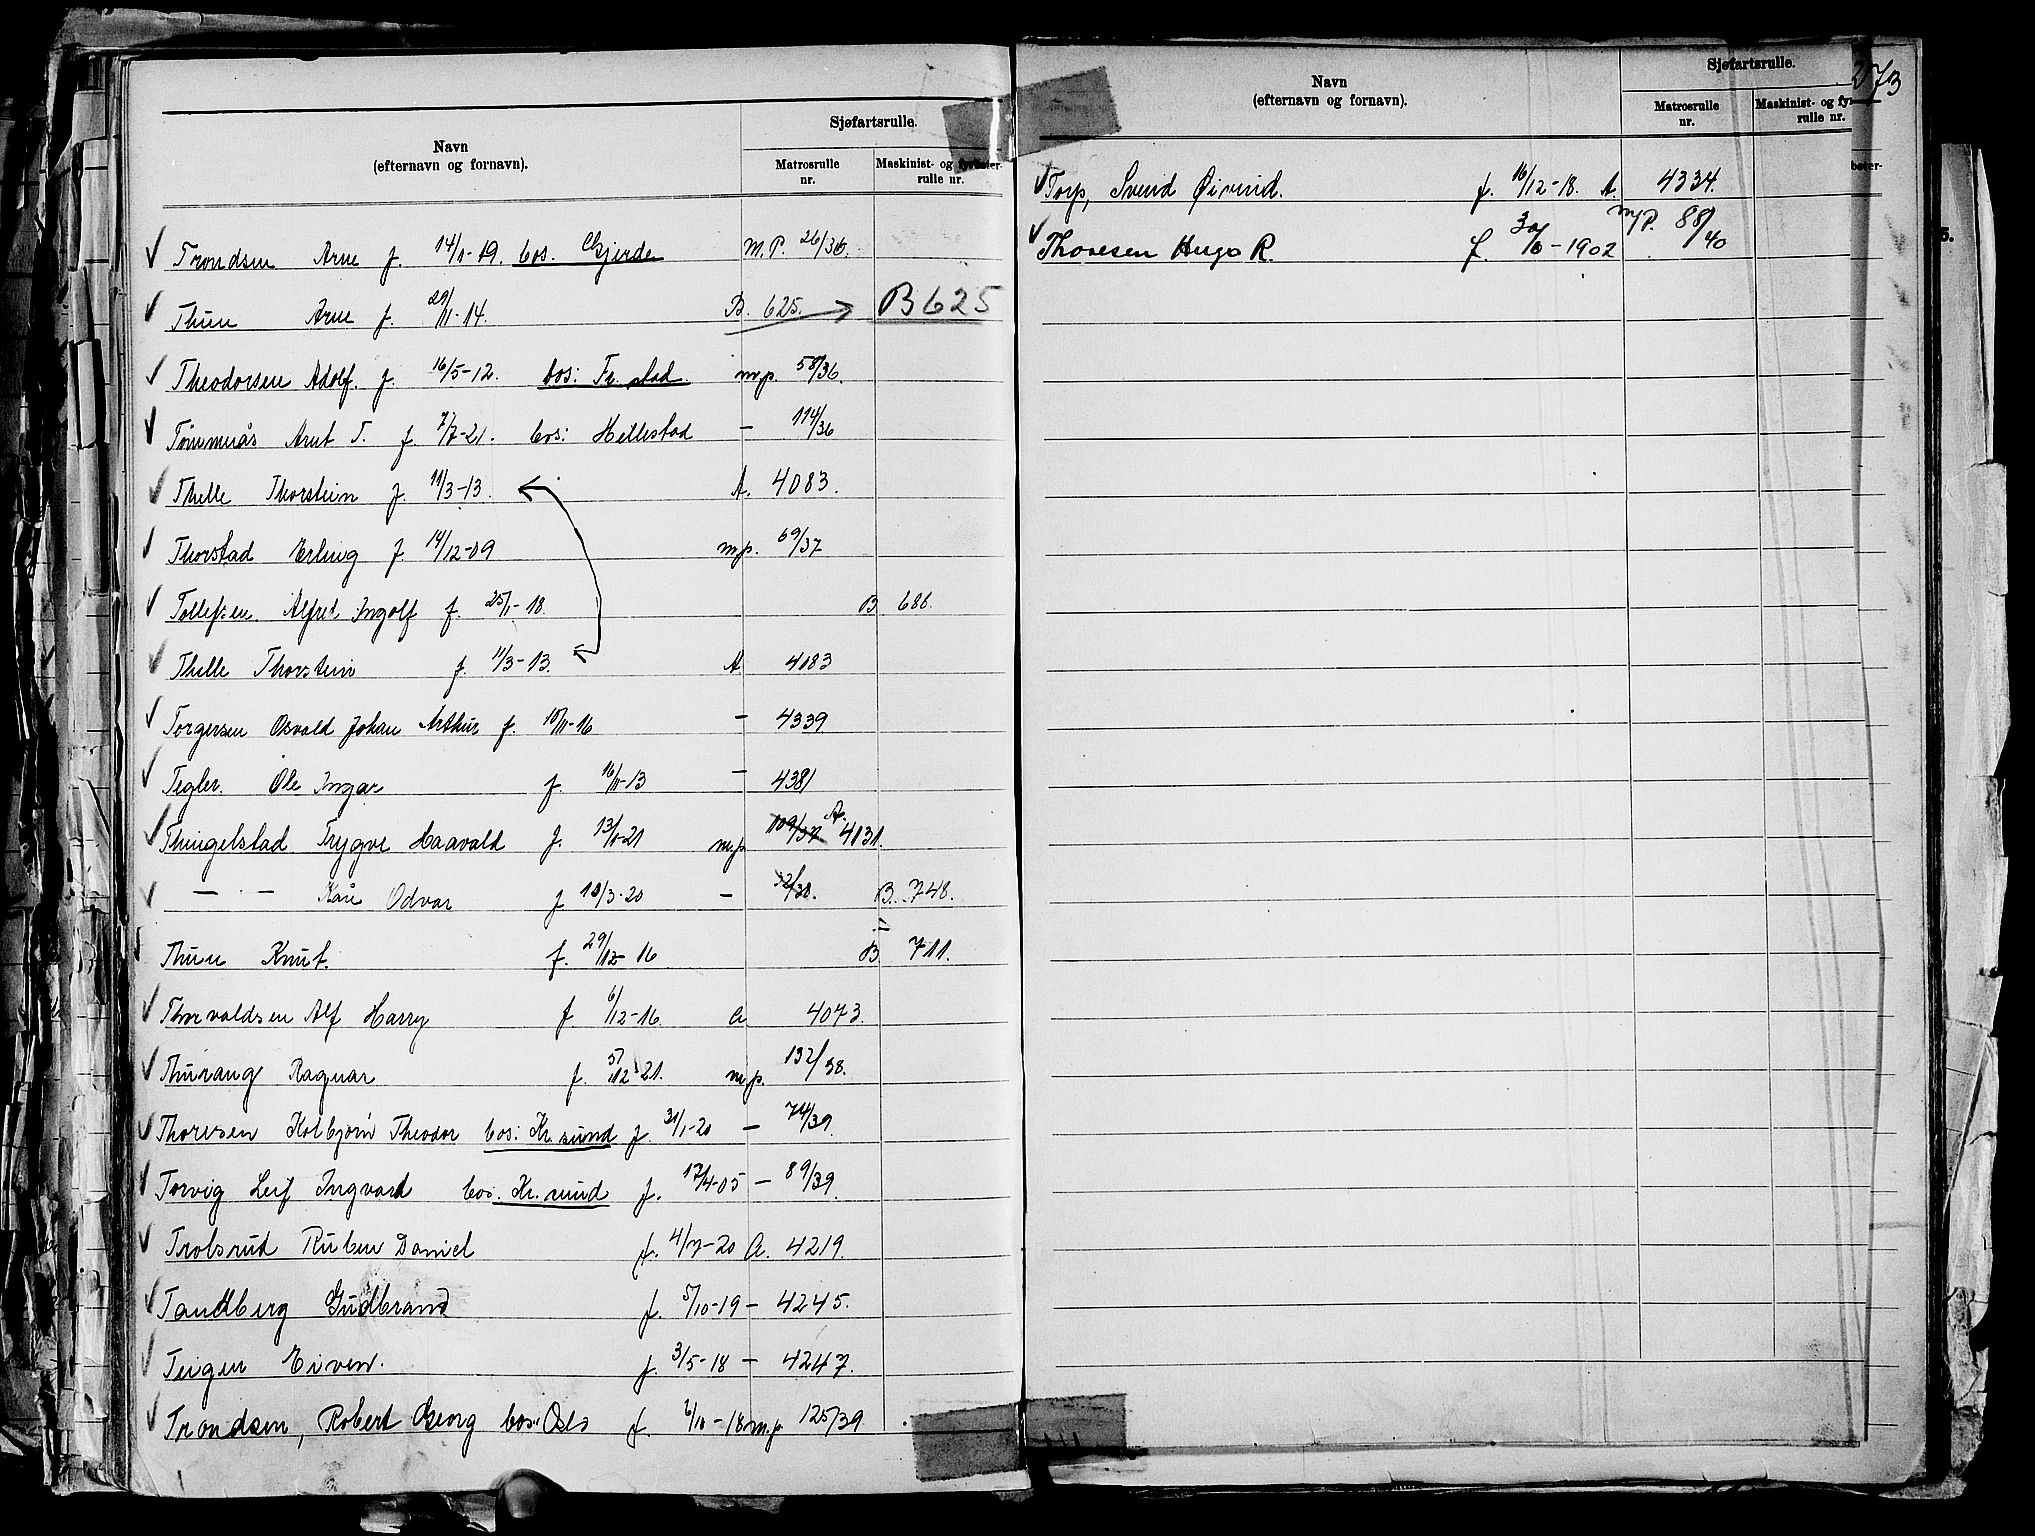 Navn
(efternavn og fornavn).
Sjøfartsrulle.
Matrosrulle
nr.
Maskinist- og fyrbøter-
rulle nr.
Trondsen Arne f. 14/1-19. bos. Gjerde M.P. 26/36.
Thun Arne f. 29/11-14. B. 625. → B 625
Theodorsen Adolf. f. 16/5-12. bos: Fr. stad. m.p. 58/36.
Tømmerås Arnt T. f. 7/7-21. bos: Hellestad — 114/36
Thelle Thorstein f. 11/3-13. A. 4083.
Thorstad Erling f 14/12-09 m.p. 69/37
Tollefsen. Alfred Ingolf f. 25/1-18. B 686.
Thelle Thorstein f. 11/3-13. A 4083
Torgersen Osvald Johan Arthur f. 10/11-16 — 4339
Tegler. Ole Ingar f. 16/11-13 — 4381
Thingelstad Trygve Haavald f. 13/1-21 m.p. 109/37 A. 4131.
— — Kåre Odvar f 10/3-20 — 32/38. B. 748.
Thun Knut. f. 29/12-16 B 711.
Thorvaldsen Alf Harry f 6/12-16. a 4073.
Thurang Ragnar f. 5/12-21. m.p. 132/38.
Thoresen Kolbjørn Theodor bos: Kr. sund f. 31/1-20 — 74/39.
Torvig Leif Ingvard bos. Kr. sund f. 17/4-05 — 89/39.
Trolsrud Ruben Daniel f. 4/7-20 A. 4219.
Tandberg Gudbrand f. 5/10-19 — 4245.
Teigen Eiven. f. 3/5-18 — 4247.
Trondsen, Robert Georg bos: Oslo f. 2/10-18 m.p. 125/39
273
Navn
(efternavn og fornavn).
Sjøfartsrulle.
Matrosrulle
nr.
Maskinist- og fy
rulle nr.
bøter-
Torp, Svend Øivind. f. 16/12-18. A. 4334.
Thoresen Hugo R. f. 30/6-1902 m/P. 88/40
5.